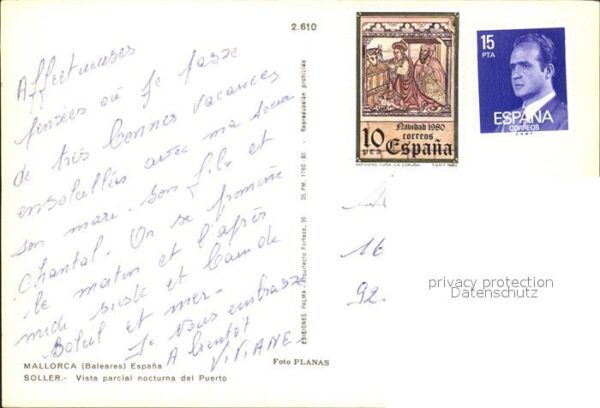 2.610
Affectueuses
Pensées où Je passe
de très bonnes vacances
ensoleillées avec ma soeur
son mari - son fils et
Chantal. On se promène
le matin et l'après
midi sieste et bain de
Soleil et mer -
Je vous embrasse
A bientôt
VIVIANE
MALLORCA (Baleares) España
SOLLER.- Vista parcial nocturna del Puerto
Foto PLANAS
EDICIONES PALMA - Arquitecto Forteza, 20 DL.PM. 1760 - 65 - Reproducción prohibida
Navidad 1980
10 correos
pta España
NATIVIDAD CUIÑA (LA CORUÑA) F.N.M.T. 1980
15
PTA
ESPAÑA
CORREOS
16
92
privacy protection
Datenschutz